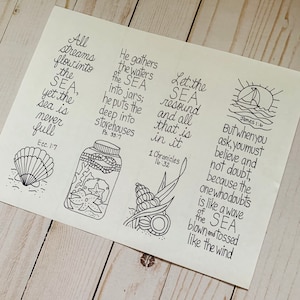 All
streams
flow into
the
SEA,
yet the
sea is
never
full
Ecc. 1:7
He gathers
the waters
of the SEA
into jars;
he puts the
deep into
storehouses
Ps. 33:7
Let the
SEA
resound
and all
that is
in it
1 Chronicles
16:32
James 1:6
But when you
ask, you must
believe and
not doubt,
because the
one who doubts
is like a wave
of the SEA
blown and tossed
like the wind